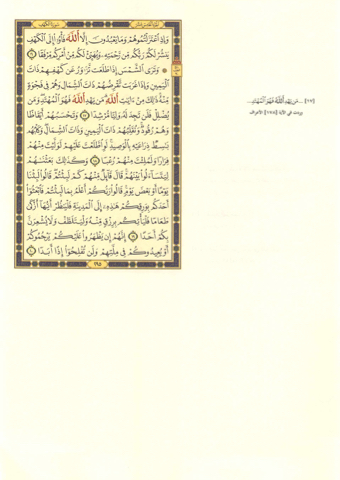 سورة الكهف
وَإِذِ ٱعْتَزَلْتُمُوهُمْ وَمَا يَعْبُدُونَ إِلَّا ٱللَّهَ فَأْوُۥٓا۟ إِلَى ٱلْكَهْفِ
يَنشُرْ لَكُمْ رَبُّكُم مِّن رَّحْمَتِهِۦ وَيُهَيِّئْ لَكُم مِّنْ أَمْرِكُم مِّرْفَقًا ١٦
۞ وَتَرَى ٱلشَّمْسَ إِذَا طَلَعَت تَّزَٰوَرُ عَن كَهْفِهِمْ ذَاتَ
ٱلْيَمِينِ وَإِذَا غَرَبَت تَّقْرِضُهُمْ ذَاتَ ٱلشِّمَالِ وَهُمْ فِى فَجْوَةٍ
مِّنْهُ ذَٰلِكَ مِنْ ءَايَٰتِ ٱللَّهِ مَن يَهْدِ ٱللَّهُ فَهُوَ ٱلْمُهْتَدِ وَمَن
يُضْلِلْ فَلَن تَجِدَ لَهُۥ وَلِيًّا مُّرْشِدًا ١٧ وَتَحْسَبُهُمْ أَيْقَاظًا
وَهُمْ رُقُودٌ وَنُقَلِّبُهُمْ ذَاتَ ٱلْيَمِينِ وَذَاتَ ٱلشِّمَالِ وَكَلْبُهُم
بَٰسِطٌ ذِرَاعَيْهِ بِٱلْوَصِيدِ لَوِ ٱطَّلَعْتَ عَلَيْهِمْ لَوَلَّيْتَ مِنْهُمْ
فِرَارًا وَلَمُلِئْتَ مِنْهُمْ رُعْبًا ١٨ وَكَذَٰلِكَ بَعَثْنَٰهُمْ
لِيَتَسَآءَلُوا۟ بَيْنَهُمْ قَالَ قَآئِلٌ مِّنْهُمْ كَمْ لَبِثْتُمْ قَالُوا۟ لَبِثْنَا
يَوْمًا أَوْ بَعْضَ يَوْمٍ قَالُوا۟ رَبُّكُمْ أَعْلَمُ بِمَا لَبِثْتُمْ فَٱبْعَثُوٓا۟
أَحَدَكُم بِوَرِقِكُمْ هَٰذِهِۦٓ إِلَى ٱلْمَدِينَةِ فَلْيَنظُرْ أَيُّهَآ أَزْكَىٰ
طَعَامًا فَلْيَأْتِكُم بِرِزْقٍ مِّنْهُ وَلْيَتَلَطَّفْ وَلَا يُشْعِرَنَّ
بِكُمْ أَحَدًا ١٩ إِنَّهُمْ إِن يَظْهَرُوا۟ عَلَيْكُمْ يَرْجُمُوكُمْ
أَوْ يُعِيدُوكُمْ فِى مِلَّتِهِمْ وَلَن تُفْلِحُوٓا۟ إِذًا أَبَدًا ٢٠
٢٩٥
[١٧] ...مَن يَهْدِ ٱللَّهُ فَهُوَ ٱلْمُهْتَدِ...